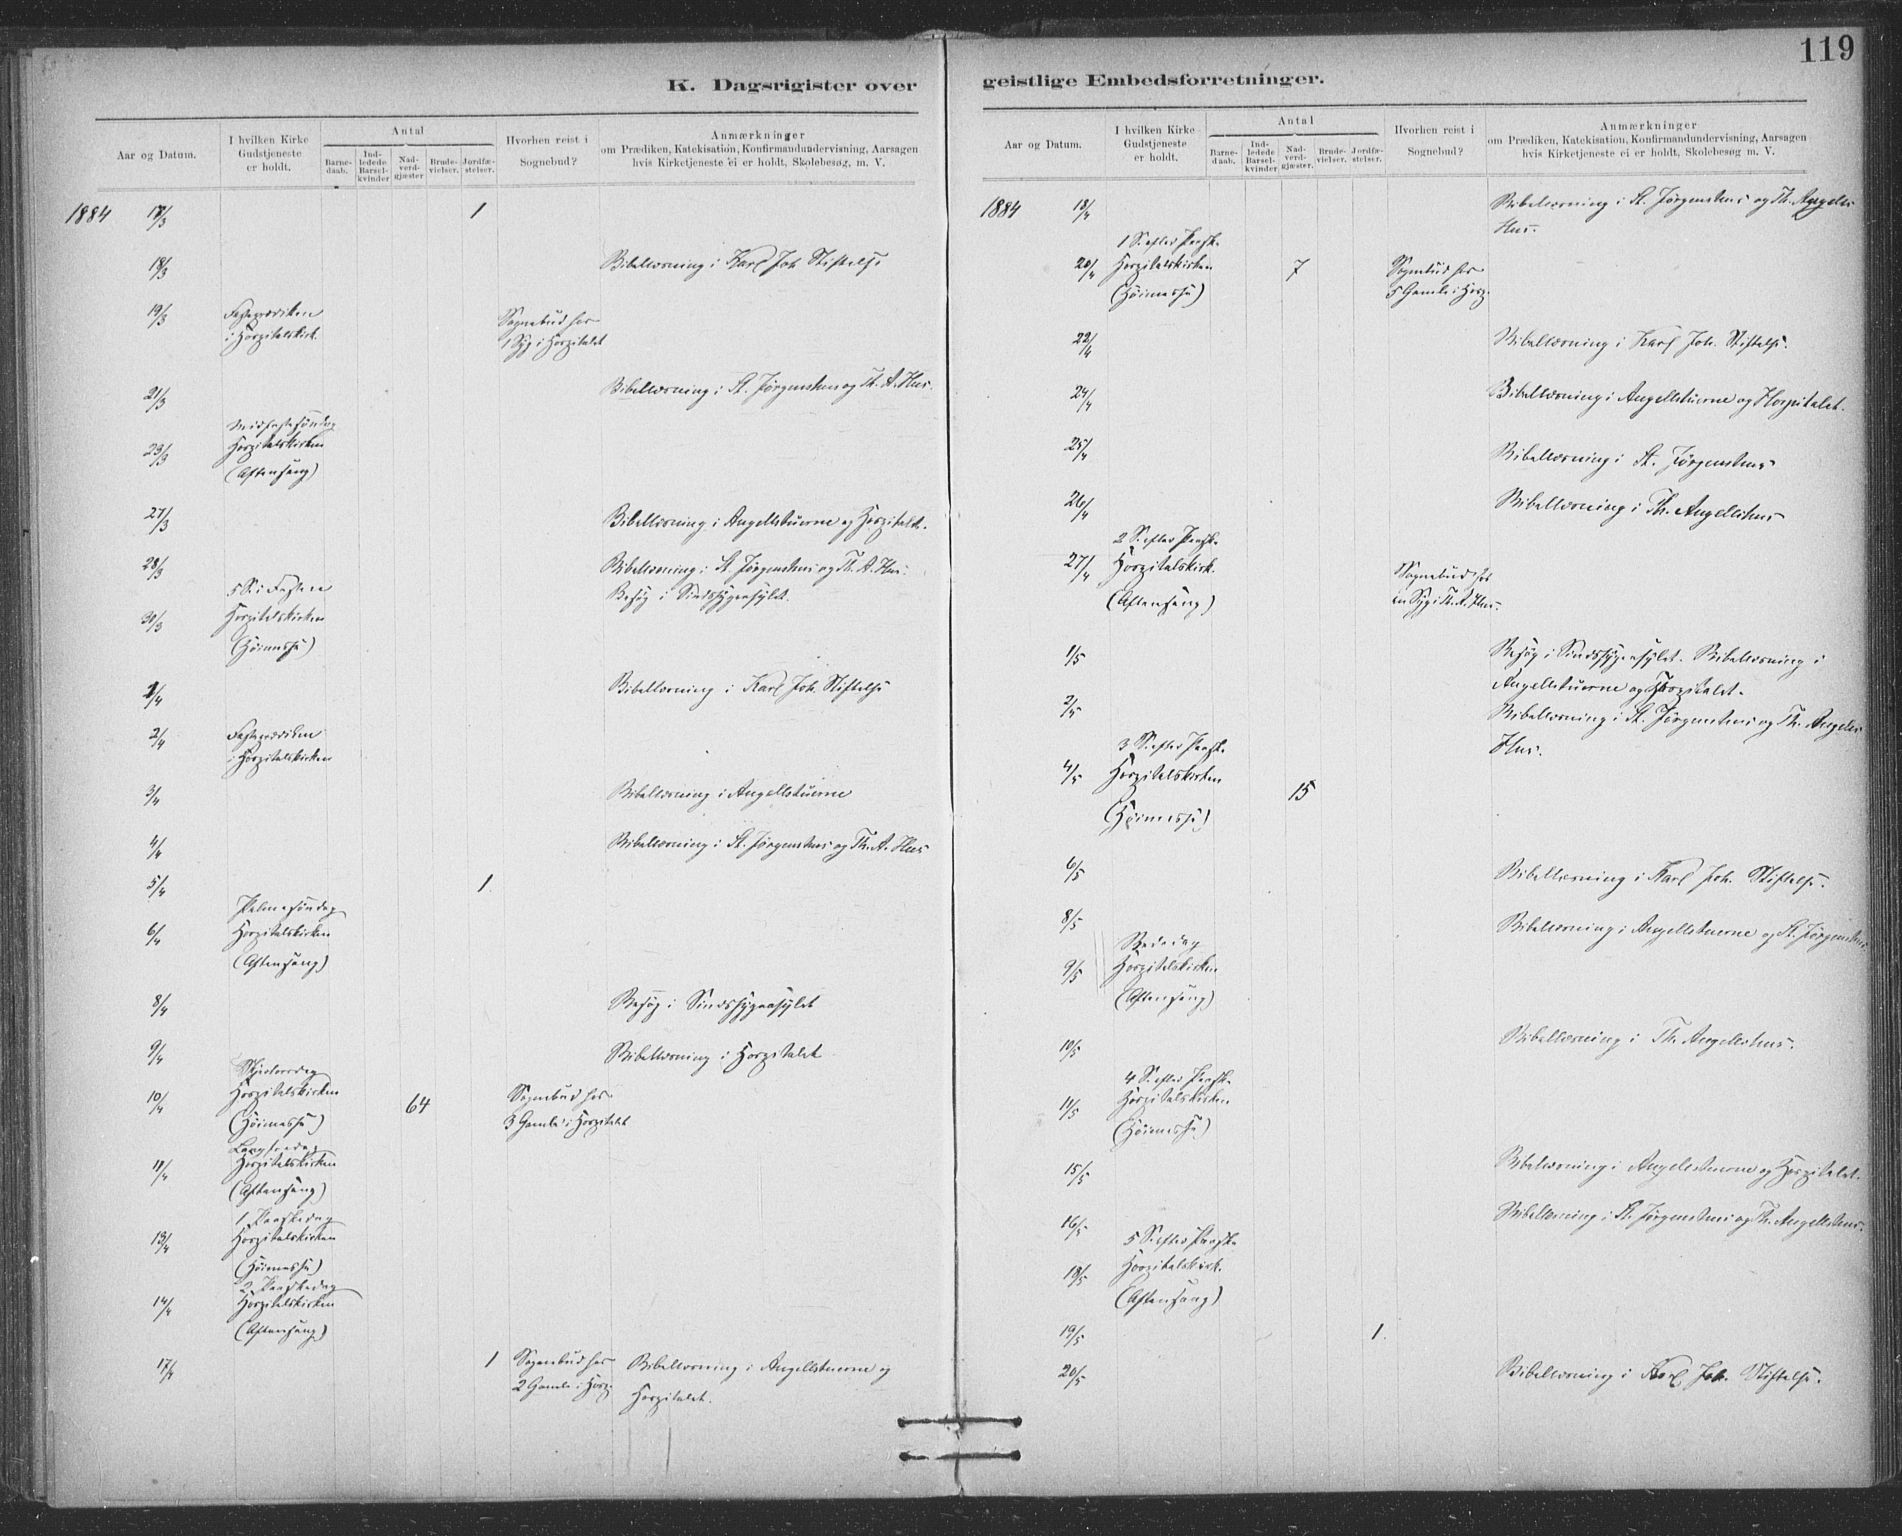 119
K. Dagsrigister over
Aar og Datum.
I hvilken Kirke
Gudstjeneste
er holdt.
Antal
Barne-
daab.
Ind-
ledede
Barsel-
kvinder
Nad-
verd-
gjæster.
Brude-
vielser.
Jordfæ-
stelser.
Hvorhen reist i
Sognebud?
Anmærkninger
om Prædiken, Katekisation, Konfirmandundervisning, Aarsagen
hvis Kirketjeneste ei er holdt, Skolebesøg, m. V.
1884 17/3 1
18/3 Bibellæsning i Karl Joh Stiftelse
19/3 Fasteprædiken Sognebud hos
i Hospitalskirk. 1 Syg i Hospitalet
21/3 Bibellæsning i St. Jørgenshus og Th. A. Hus.
Midfastesöndag
23/3 Hospitalskirken
(Aftensang)
27/3 Bibellæsning i Angellstuerne og Hospitalet.
28/3 Bibellæsning i St. Jørgenshus og Th. A. Hus.
5 S. i Fasten Besøg i Sindssygeasylet.
30/3 Hospitalskirken
(Höimesse)
1/4 Bibellæsning i Karl Joh. Stiftelse
2/4 Fasteprædiken
i Hospitalskirken
3/4 Bibellæsning i Angellstuerne
4/4 Bibellæsning i St. Jørgenshus og Th. A. Hus
5/4 1.
Palmesöndag
6/4 Hospitalskirken
(Aftensang)
8/4 Besøg i Sindssygeasylet
9/4 Bibellæsning i Hospitalet
Skjertorsdag
10/4 Hospitalskirken 64 Sognebud hos
(Höimesse) 3 Gamle i Hospitalet
Langfredag
11/4 Hospitalskirken
(Aftensang)
1. Paaskedag
13/4 Hospitalskirken
(Höimesse)
2. Paaskedag
14/4 Hospitalskirken
(Aftensang)
17/4 1 Sognebud hos Bibellæsning i Angellstuerne og
2 Gamle i Hosp. Hospitalet.
geistlige Embedsforretninger.
Aar og Datum.
I hvilken Kirke
Gudstjeneste
er holdt.
Antal
Barne-
daab.
Ind-
ledede
Barsel-
kvinder
Nad-
verd-
gjæster.
Brude-
vielser.
Jordfæ-
stelser.
Hvorhen reist i
Sognebud?
Anmærkninger
om Prædiken, Katekisation, Konfirmandundervisning, Aarsagen
hvis Kirketjeneste ei er holdt, Skolebesøg, m. V.
1884 18/4 Bibellæsning i St. Jørgenshus og Th. Angells
Hus.
1 S. efter Paaske
20/4 Hospitalskirken 7 Sognebud hos
(Höimesse) 5 Gamle i Hosp.
22/4 Bibellæsning i Karl Joh. Stiftelse.
24/4 Bibellæsning i Angellstuerne og Hospitalet.
25/4 Bibellæsning i St. Jørgenshus
26/4 Bibellæsning i Th. Angellshus
2 S. efter Paaske
27/4 Hospitalskirk. Sognebud hos
(Aftensang) en Syg i Th. A. Hus.
1/5 Besøg i Sindssygeasylet. Bibellæsning i
Angellstuerne og Hospitalet.
2/5 Bibellæsning i St. Jørgenshus og Th. Angells
Hus.
3 S. efter Paaske
4/5 Hospitalskirken 15
(Höimesse)
6/5 Bibellæsning i Karl Joh. Stiftelse.
8/5 Bibellæsning i Angellstuerne og St. Jørgenshus
Bededag
9/5 Hospitalskirken
(Aftensang)
10/5 Bibellæsning i Th. Angellshus.
4 S. efter Paaske
11/5 Hospitalskirken
(Höimesse)
15/5 Bibellæsning i Angellstuerne og Hospitalet.
16/5 Bibellæsning i St. Jørgenshus og Th. Angellshus.
5 S. efter Paaske
18/5 Hospitalskirk.
(Aftensang)
19/5 1.
20/5 Bibellæsning i Karl Joh. Stiftelse.